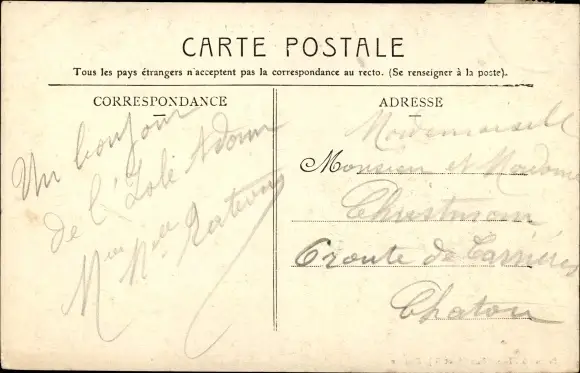 CARTE POSTALE
Tous les pays étrangers n'acceptent pas la correspondance au recto. (Se renseigner à la poste).
CORRESPONDANCE
Un bonjour
de l'Isle Adam
ADRESSE
Mademoiselle
Monsieur et Madame
Christmann
6 route de Carrières
Chatou